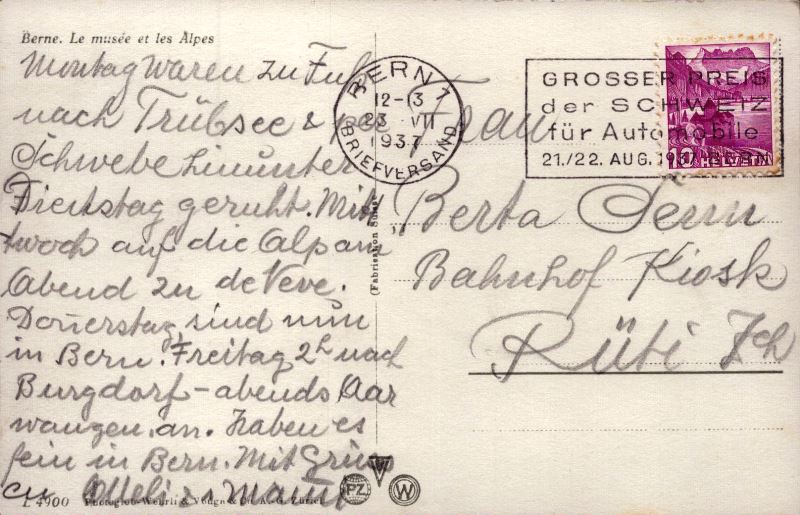 Berne. Le musée et les Alpes
Montag waren zu Fuß
nach Trübsee & per
Schwebe hinunter
Dienstag geruht. Mitt
woch auf die Alp am
Abend zu
Donerstag, sind nun
in Bern. Freitag 2h nach
Burgdorf - abends Aar
wangen an. Haben es
fein in Bern. Mit Grüss
L 4900 Photoglob-Wehrli & Vouga & Co. A.-G. Zürich
(Fabrication Suisse)
PZ
W
BERN 1
12-13
23. VII
1937
BRIEFVERSAND
GROSSER PREIS
der SCHWEIZ
für Automobile
21./22. AUG. 1937 BERN
10 HELVETIA
Frau
Berta
Bahnhof Kiosk
Rüti Zch